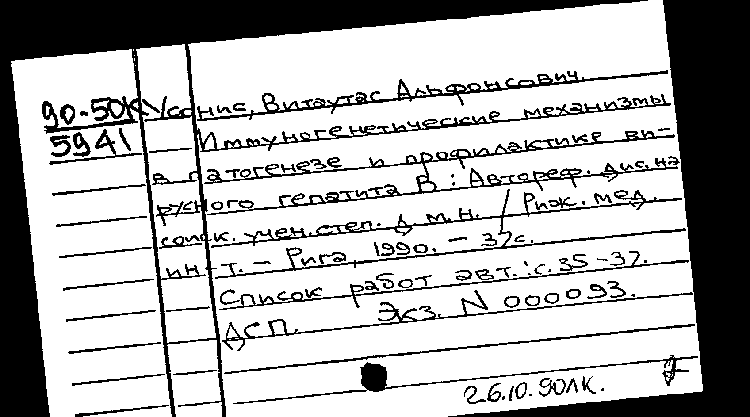 90-50К
5941
Усонис, Витаутас Альфонсович.
Иммуногенетические механизмы
в патогенезе и профилактике ви-
русного гепатита В : Автореф. дис. на
соиск. учен. степ. д. м. н. / Риж. мед.
ин-т. - Рига, 1990. - 37с.
Список работ авт.: с. 35-37.
ДСП. Экз. N 000093.
26.10.90лк.